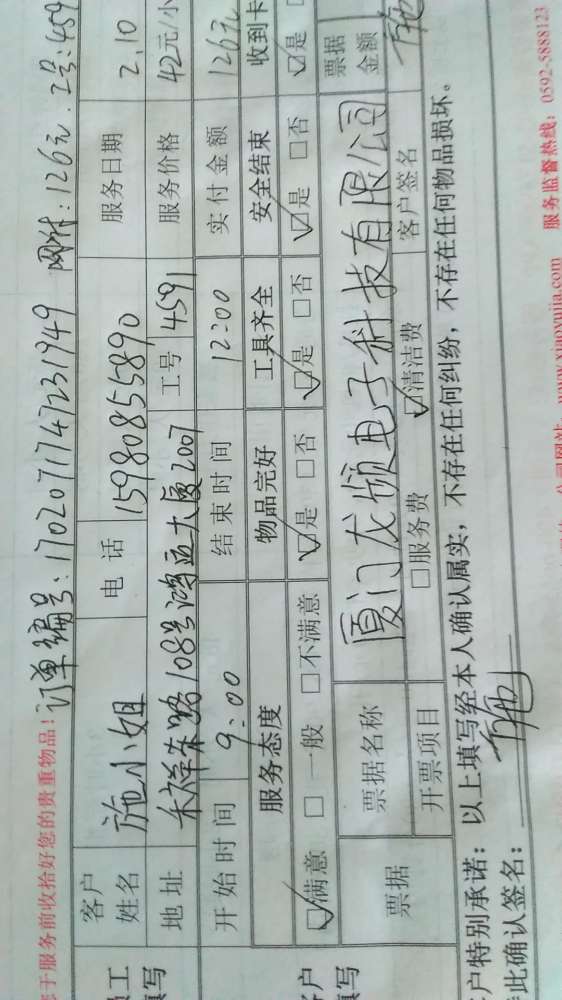 于服务前收拾好您的贵重物品！
订单编号：1702071747231949 网付：126元. 工号：459
客户姓名 施小姐 电话 15980855890 服务日期 2.10
地址 禾祥东路108号鸿运大厦2007 工号 4591 服务价格 42元/小
开始时间 9:00 结束时间 12:00 实付金额 126元
服务态度 物品完好 工具齐全 安全结束 收到卡
☑满意 □一般 □不满意 ☑是 □否 ☑是 □否 ☑是 □否 ☑是
票据 票据名称 厦门龙频电子科技有限公司 票据金额
开票项目 □服务费 ☑清洁费 客户签名 施
户特别承诺：以上填写经本人确认属实，不存在任何纠纷，不存在任何物品损坏。
此确认签名： 施
公司网站：www.xiaoyujia.com 服务监督热线：0592-5888123